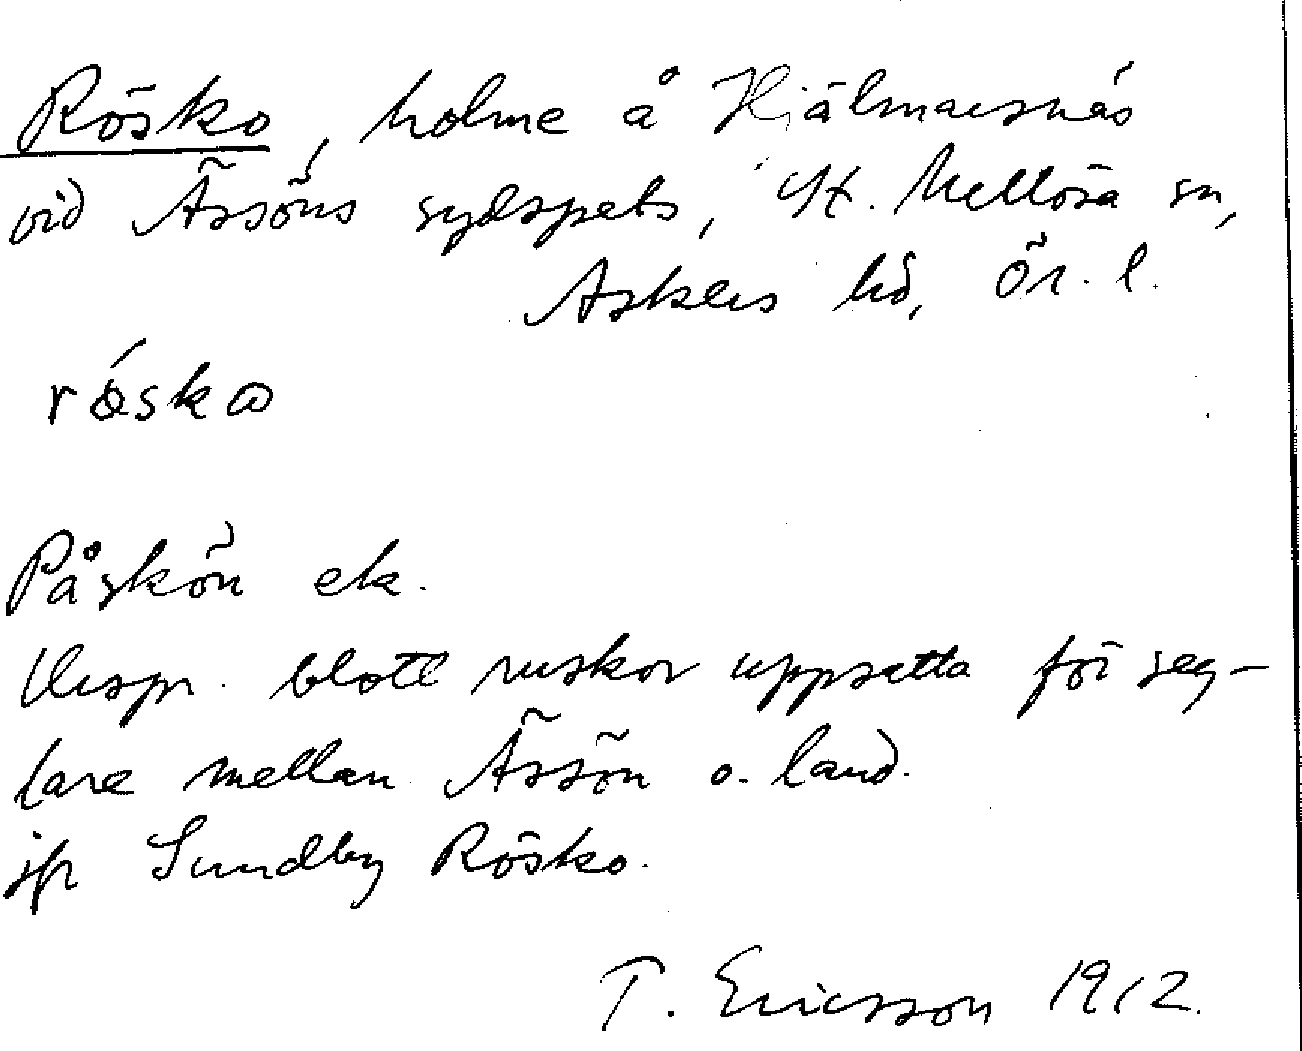 Rösko, holme å Hjälmarsnäs
vid Ässöns sydspets, St. Mellösa sn,
Askers hd, Ör. l.
Påskön ek.
Urspr. blott ruskor uppsatta för seg-
lare mellan Ässön o. land.
jfr Sundby Rösko.
T. Ericsson 1912.